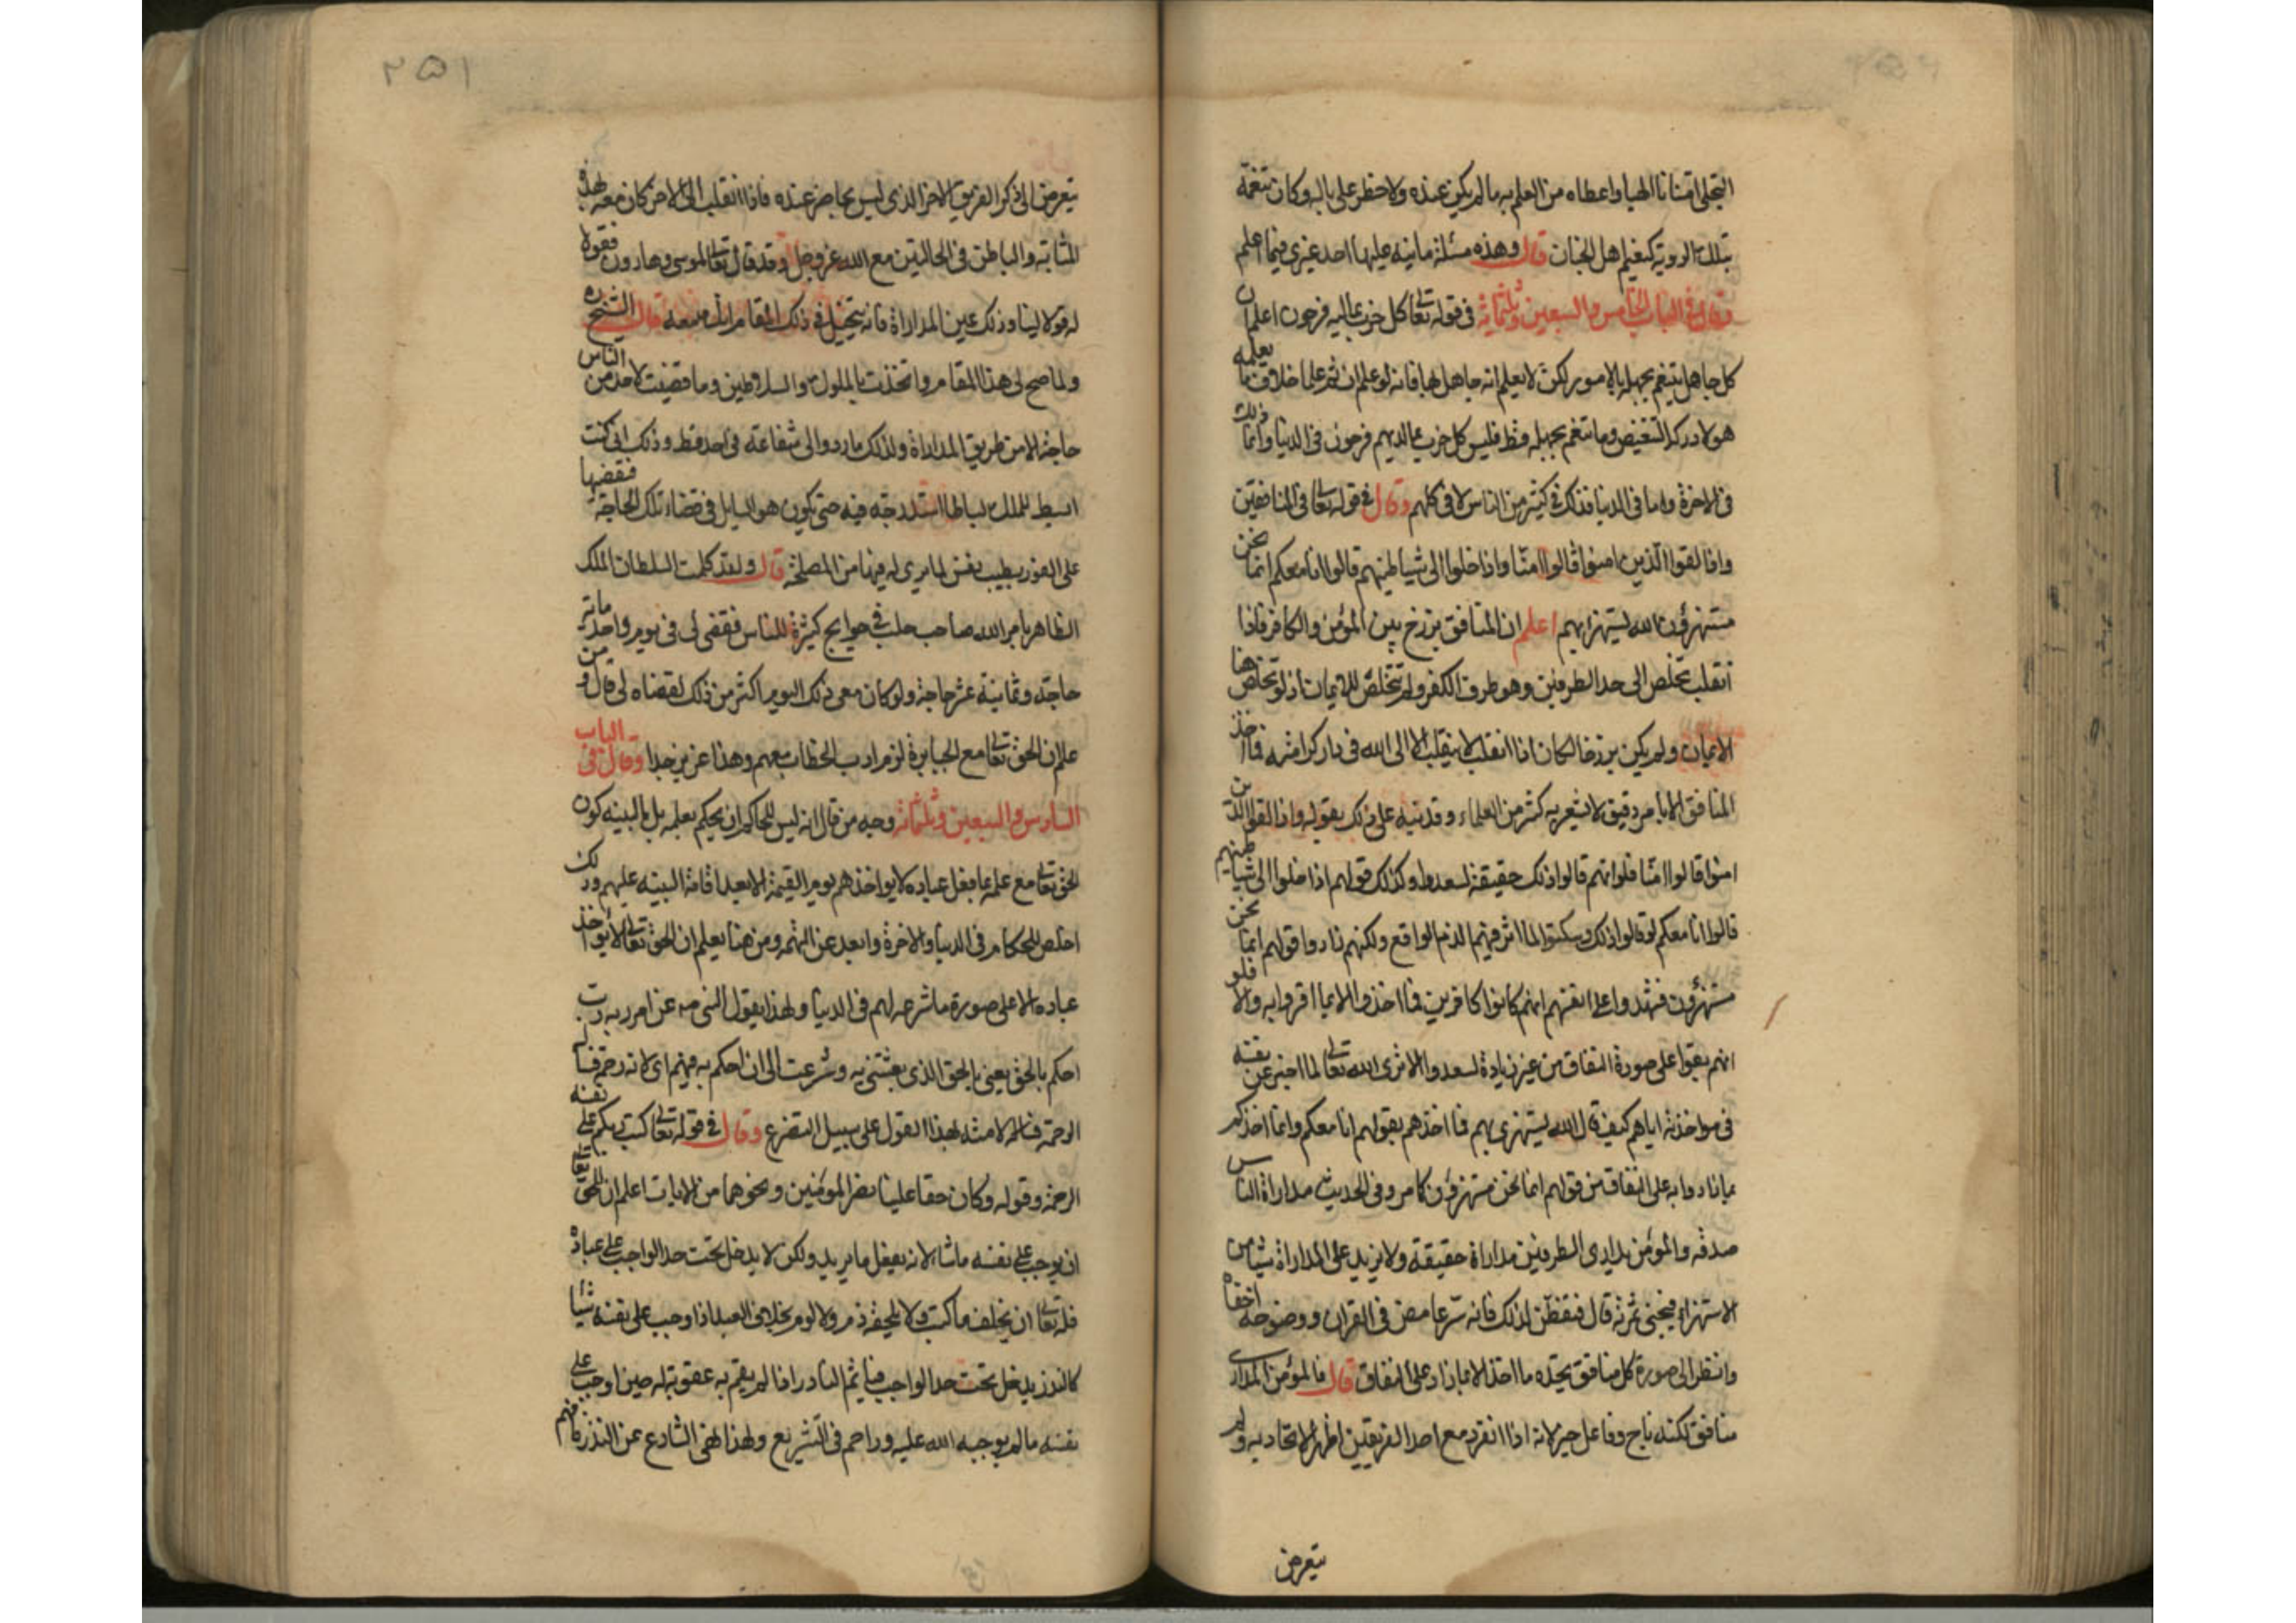 التجلى امتنانا الهيا واعطاه من العلم به ما لم يكن عنده ولا خطر على باله وكان تنعمه
بتلك الروية كنعيم اهل الجنان قال وهذه مسئلة ما نبه عليها احد غيرى فيما اعلم
وقال فى الباب الخامس والسبعين وثلثمائة فى قوله تعالى كل حزب بما لديهم فرحون اعلم ان
كل جاهل يتنعم بجهله بالامور لكن لا يعلم انه جاهل بها فانه لو علم ان ثم علما خلاف ما يعلمه
هو لادركه التنغيص وما تنعم بجهله قط فليس كل حزب بما لديهم فرحون فى الدنيا وانما ذلك
فى الاخرة واما فى الدنيا فذلك فى كثير من الناس لا فى كلهم وقال فى قوله تعالى فى المنافقين
واذا لقوا الذين امنوا قالوا امنا واذا خلوا الى شياطينهم قالوا انا معكم انما نحن
مستهزؤن الله يستهزئ بهم اعلم ان المنافق برزخ بين المؤمن والكافر فاذا
انقلب تخلص الى احد الطرفين وهو طرف الكفر ولم يتخلص للايمان اذ لو تخلص هنا
الايمان ولم يكن برزخا لكان اذا انقلب لا ينقلب الا الى الله فى دار كرامته فما اخذ
المنافق الا بامر دقيق لا يشعر به كثير من العلماء وقد نبه على ذلك بقوله واذا لقوا الذين
امنوا قالوا امنا فلو انهم قالوا ذلك حقيقة لسعدوا وكذلك قولهم اذا خلوا الى شياطينهم
قالوا انا معكم لو قالوا ذلك وسكتوا لما اثر فيهم الذم الواقع ولكنهم زادوا قولهم انما نحن
مستهزؤن فشهدوا على انفسهم انهم كانوا كافرين فما اخذوا الا بما اقروا به والا فلو
انهم بقوا على صورة النفاق من غير زيادة لسعدوا الا ترى الله تعالى لما اخبر عن نفسه
فى مواخذته اياهم كيف قال الله يستهزى بهم فما اخذهم بقولهم انا معكم وانما اخذهم
بما زادوا به على النفاق من قولهم انما نحن مستهزؤن كما مر وفى الحديث مداراة الناس
صدقه والمؤمن يدارى الطرفين مداراة حقيقة ولا يزيد على المداراة شيئا من
الاستهزاء فيجنى ثمرته قال فتفطن لذلك فانه سر غامض فى القران ووضوحه اخفاه
وانظر الى صورة كل منافق تجده ما اخذ الا بما زاد على النفاق قال فالمؤمن المدارى
منافق لكنه ناج وفاعل خير لانه اذا انفرد مع احد الفريقين اظهر الاتحاد به ولم
يتعرض
٢٥١
يتعرض الى ذكر الفريق الاخر الذى ليس بحاضر عنده فاذا انقلب الى الاخر كان معه بهذه
المثابة والباطن فى الحالتين مع الله عز وجل وقد قال تعالى لموسى وهارون فقولا
له قولا لينا وذلك عين المداراة فانه يتخيل فى ذلك المقام انك معه قال الشيخ ره
ولما صح لى هذا المقام واتخذت بالملوك والسلاطين وما قضيت لاحد من الناس
حاجة الا من طريق المداراة ولذلك ما ردوا لى شفاعة فى احد قط وذلك انى كنت
ابسط للملك بساطا استدرجه فيه حتى يكون هو السايل فى قضاء تلك الحاجة فيقضيها
على الفور بطيب نفس لما يرى له فيها من المصلحة قال ولقد كلمت السلطان الملك
الظاهر بامر الله صاحب حلب فى حوايج كثيرة للناس فقضى لى فى يوم واحد مائة
حاجة وثمانية عشر حاجة ولو كان معى ذلك اليوم اكثر من ذلك لقضاه لى قال ومن
علم ان الحق تعالى مع الجبابرة لزم ادب الخطاب معهم وهذا عزيز جدا وقال فى الباب
السادس والسبعين وثلثمائة وجه من قال انه ليس للحاكم ان يحكم بعلمه بل بالبينه كون
الحق تعالى مع علمه بما فعل عباده لا يواخذهم يوم القيمة الا بعد اقامة البينه عليهم وذلك
اخلص للحكام فى الدنيا والاخرة وابعد عن التهمه ومن هنا يعلم ان الحق تعالى لا يواخذ
عباده الا على صورة ما شرعه لهم فى الدنيا ولهذا يقول النبى صه عن امر ربه رب
احكم بالحق يعنى بالحق الذى بعثتنى به وشرعت لى ان احكم به فيهم
الرحمة وقال فى قوله تعالى كتب ربكم على نفسه
الرحمة وقوله وكان حقا علينا نصر المؤمنين ونحوهما من الايات اعلم ان للحق تعالى
ان يوجب على نفسه ما شاء لانه يفعل ما يريد ولكن لا يدخل تحت حد الواجب على عباده
فله تعالى ان يخلف ما كتب ولا يلحقه ذم ولا لوم بخلاف العبد اذا اوجب على نفسه شيئا
كالنذر يدخل تحت حد الواجب فياثم الناذر اذا لم يقم به عقوبة له حين اوجب على
نفسه ما لم يوجبه الله عليه وزاحم فى التشريع ولهذا نهى الشارع عن النذر فافهم